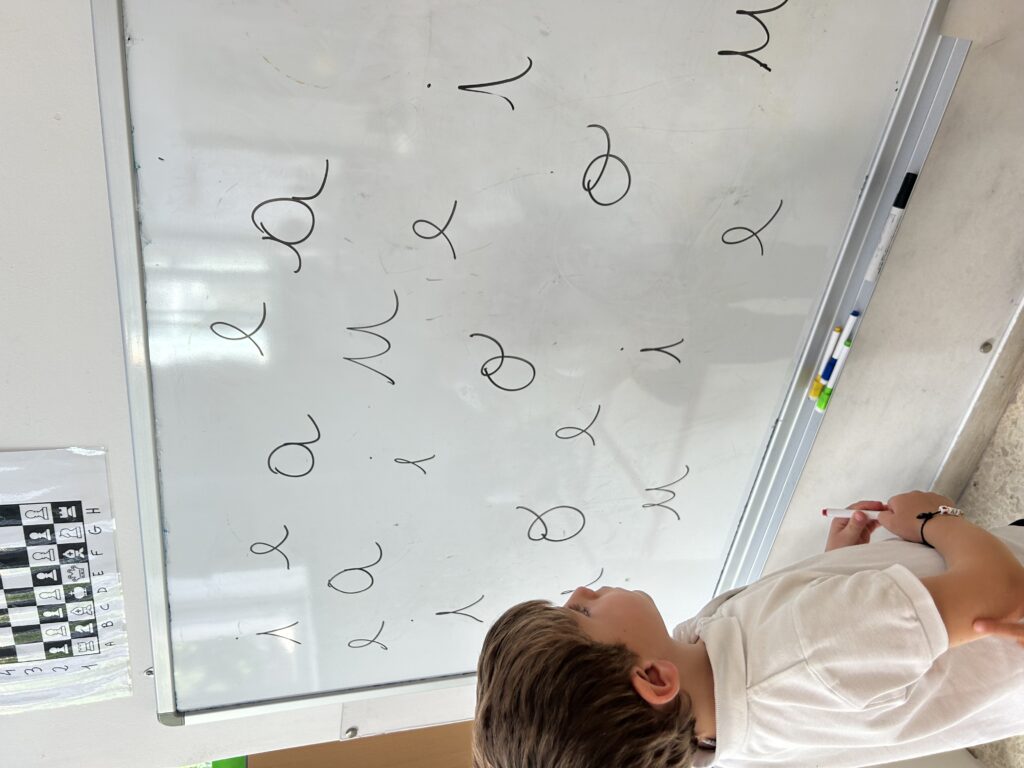 4
3
2
1
A B C D E F G H
i e a e a
e a i u e i
i o e o o
u i e u